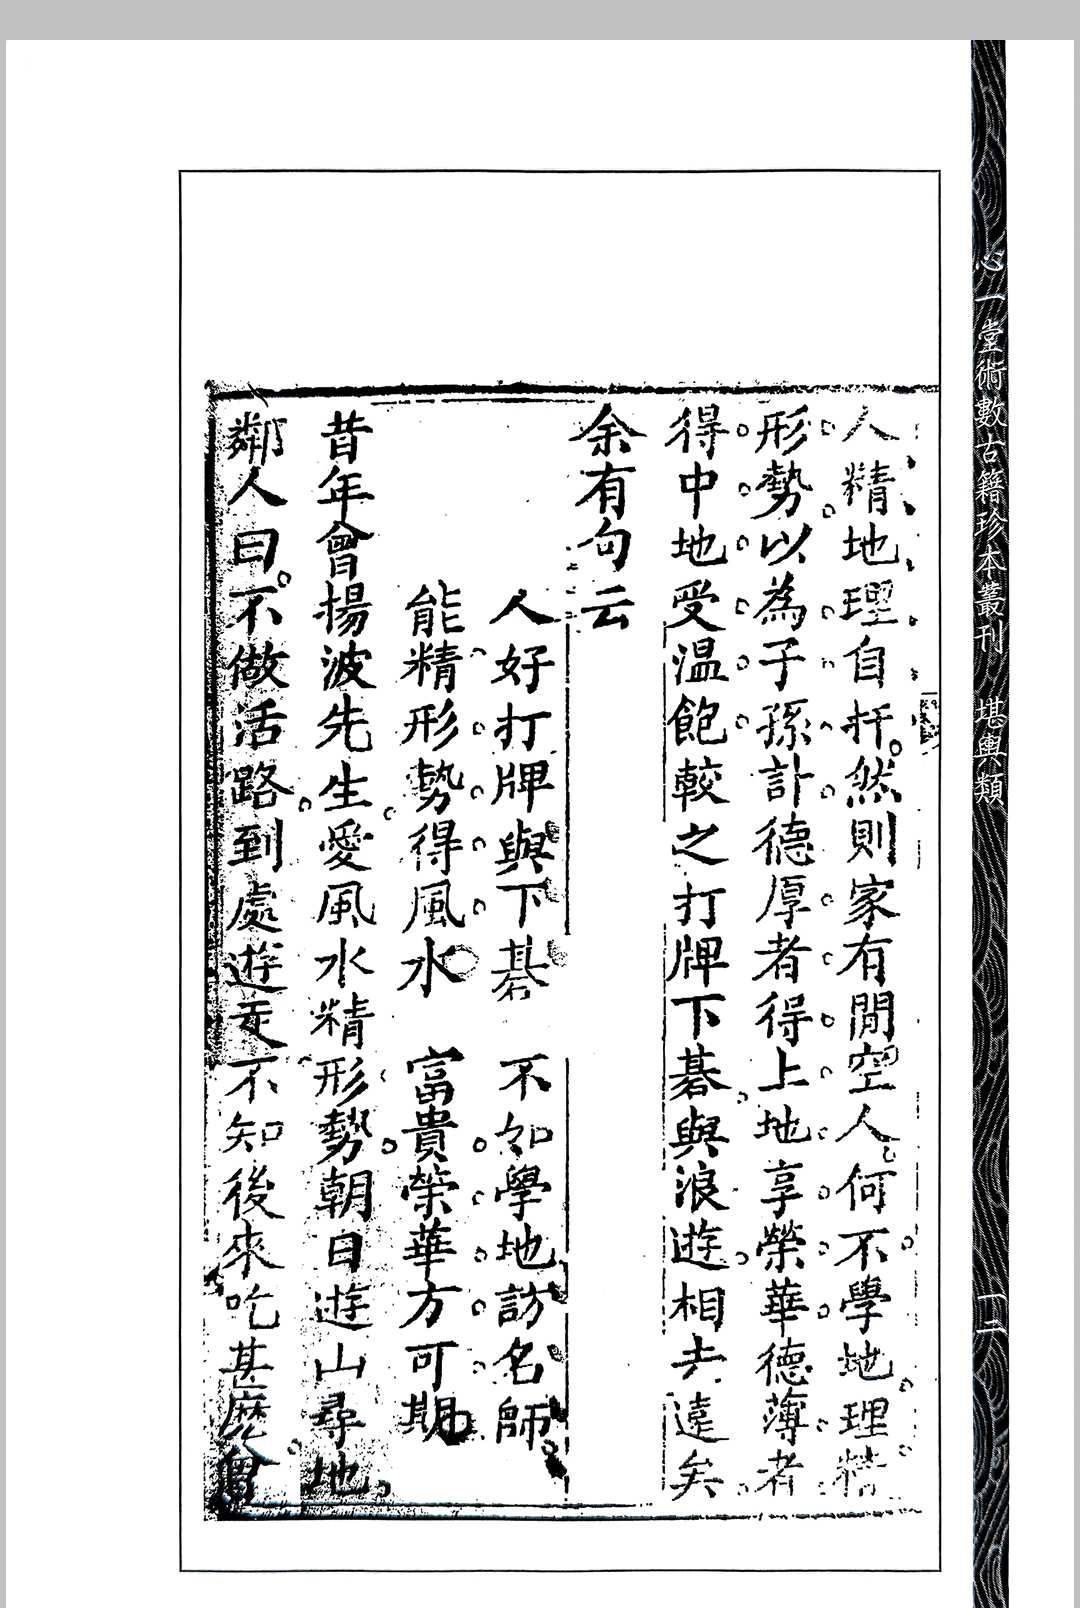 人精地理自扦然則家有閒空人何不學地理精
形勢以為子孫計德厚者得上地享榮華德薄者
得中地受温飽較之打牌下碁與浪遊相去遠矣
余有句云
人好打牌與下碁　不如學地訪名師
能精形勢得風水　富貴榮華方可期
昔年曾揚波先生愛風水精形勢朝日遊山尋地
鄰人曰不做活路到處遊走不知後來吃甚麽曾
心一堂術數古籍珍本叢刊　堪輿類
一二